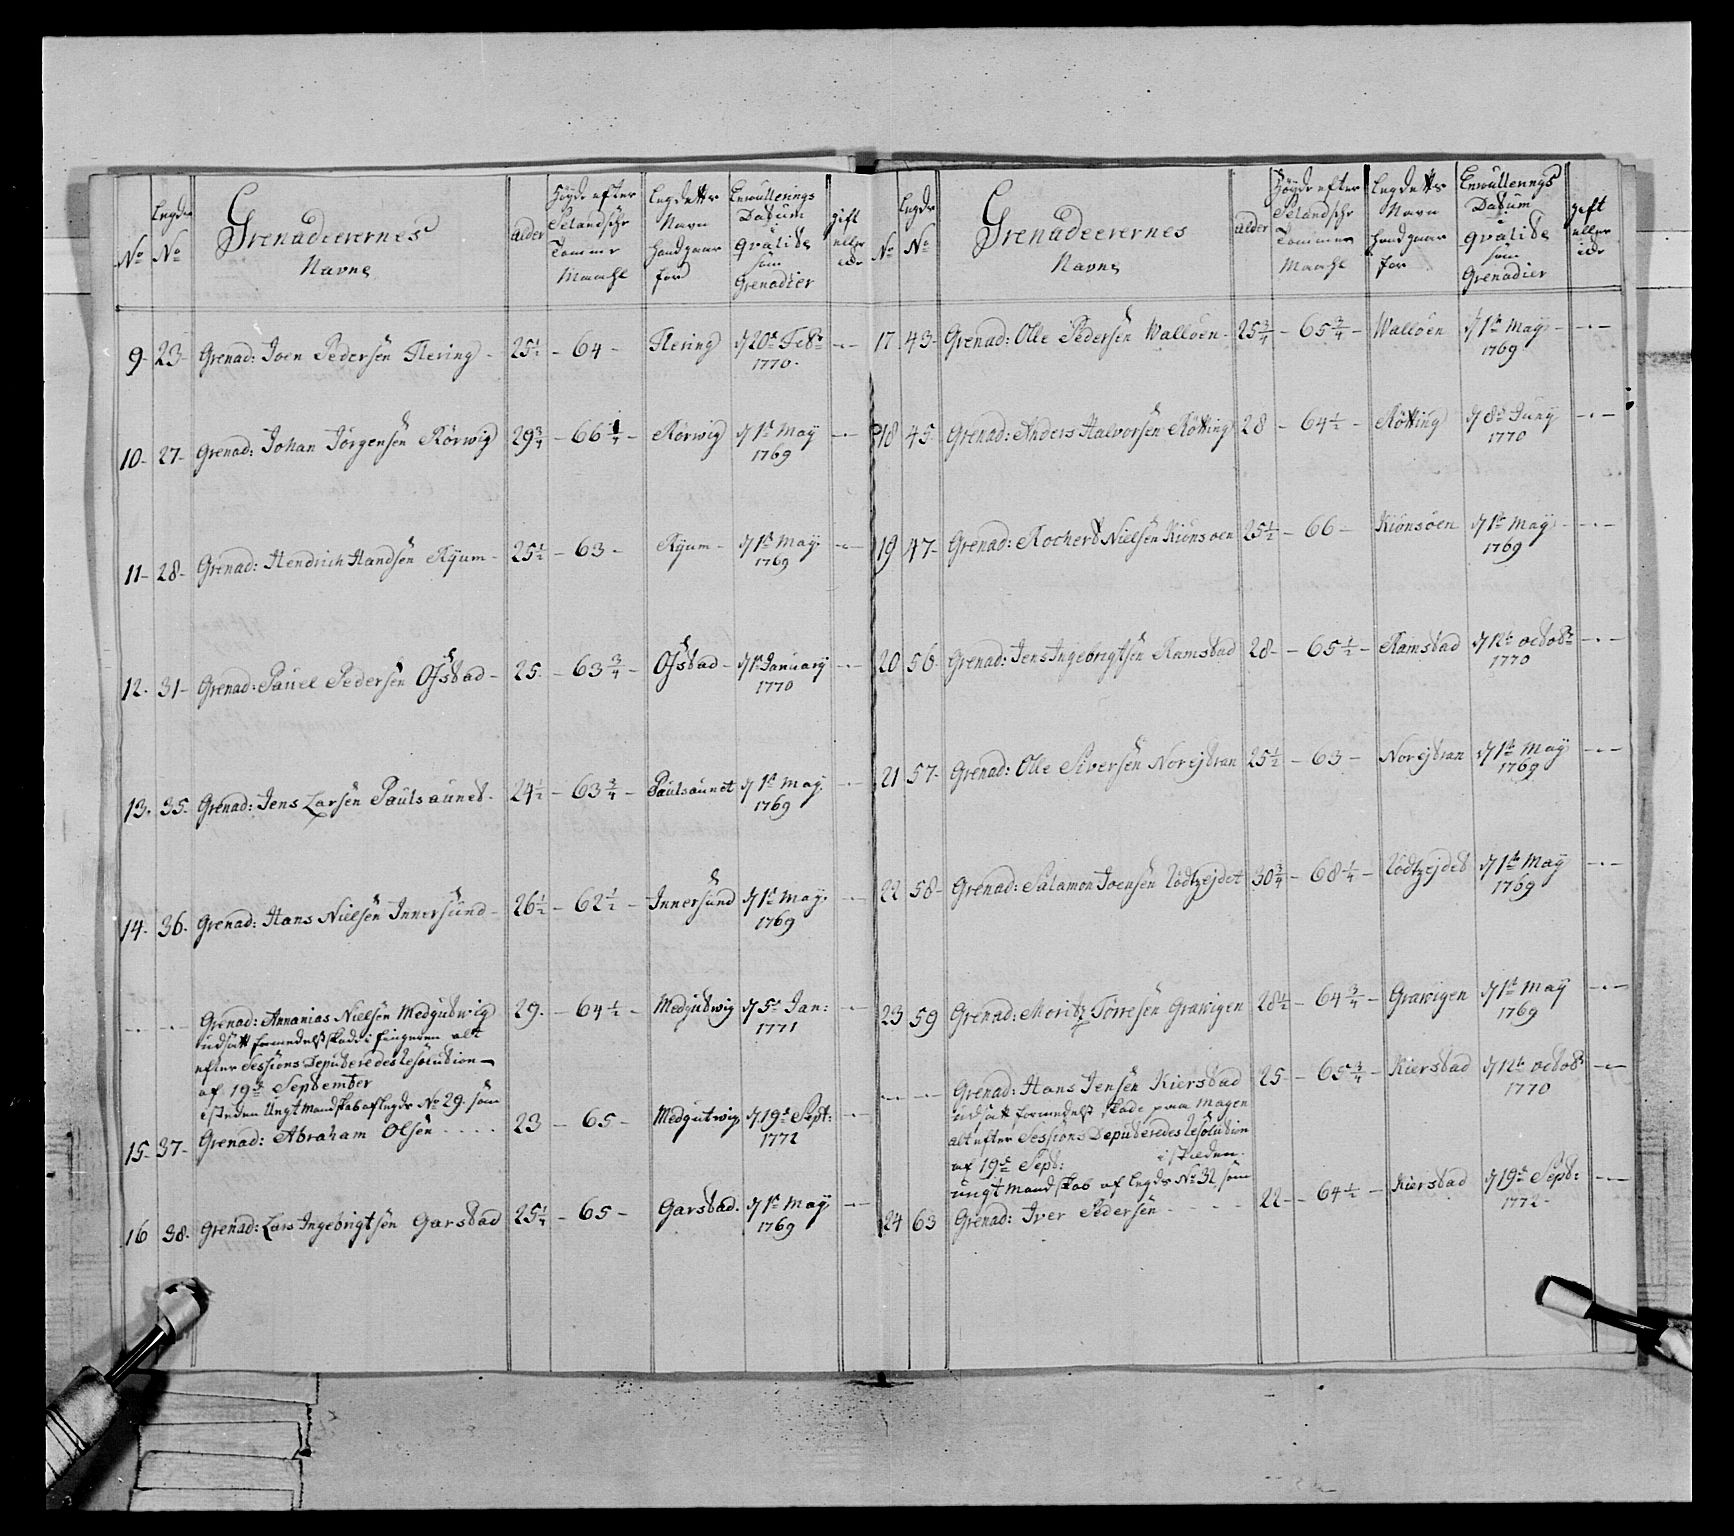 No
Legdr No
Grenadeerernes
Navne
alder
Høyde efter
Selandschr
Tommer
Maahl
Legdetts
Navn
hand gaar
for
Enrullerings
Datum
i
qualite
som
Grenadier
gift
eller
ide
9- 23- Grenad: Joen Pedersen Flering - 25½ - 64 - Flering d 20t Febr ---
1770-
10- 27- Grenad: Johan Jörgensen Rörwig 29¾ - 66¼ - Rörwig d 1t May ---
1769
11- 28- Grenad: Hendrich Handsen Ryum - 25½ - 63 - Ryum - d 1t May. ---
1769
12. 31- Grenad: Pauel Pedersen Ofstad - 25. - 63¾ - Ofstad - d 1t January ---
1770
13. 35. Grenad: Jens Larsen Paulsaunet. 24½ - 63¾ - Paulsaunet d 1t May. ---
1769
14. 36. Grenad: Hans Nielsen Innersund - 26½ - 62½ - Innersund d 1t May. ---
1769
--- --- Grenad: Annanias Nielsen Medgutwig 29. - 64½ - Medgutwig d 5t Jan: ---
1771
udsatt formedelst skade i fingeren alt
efter Sessions Deputeredes Resolution -
af 19de September
i steden Ungt Mandskab af legdr No 29. som
15- 37- Grenad: Abraham Olsen .... 23 - 65 - Medgutwig, d 19t Sept: ---
1772
16 38. Grenad: Lars Ingebrigtsen Garstad 25¼ - 65 - Garstad. d 1t May ---
1769
No
Legdr No
Grenadeerernes
Navne
alder
Høyde efter
Selandschr
Tommer
Maahl
Legdetts
Navn
hand gaar
for
Enrullerings
Datum
i
qualite
som
Grenadier
gift
eller
ide
17 43- Grenad: Olle Pedersen Walloen - 25¾ - 65¾ - Walloen d 1t May - ---
1769
18 45- Grenad: Anders Halvorsen Rötting 28 - 64½ - Rötting d 8t Juny ---
1770
19 47- Grenad: Rochert Nielsen Kiönsoen 25½ - 66 - Kiönsöen d 1t May - ---
1769
20 56- Grenad: Jens Ingebrigtsen Ramstad 28 - - 65½ - Ramstad d 12t octobr ---
1770
21 57- Grenad: Olle Siversen Norejtran 25½ - 63 - Norejtran d 1t May ---
1769
22 58- Grenad: Salamon Joensen Vedtzejdet 30¾ - 68¼ - Vedtzejdet d 1t May ---
1769
23 59 Grenad: Moritz Torresen Grawigen 28½ - 64¾ - Grawigen d 1t May ---
1769
--- --- Grenad: Hans Jensen Kierstad 25 - 65¾ - Kierstad d 12t octobr ---
1770
udsatt formedelst skade paa Magen
alt efter Sessions Deputeredes Resolution
af 19de Sept: i stæden
ungt Mandskab af legdr No 32, som
24 63 Grenad: Iver Pedersen .... 22 - - 64½ - Kierstad d 19t Sept: ---
1772 -